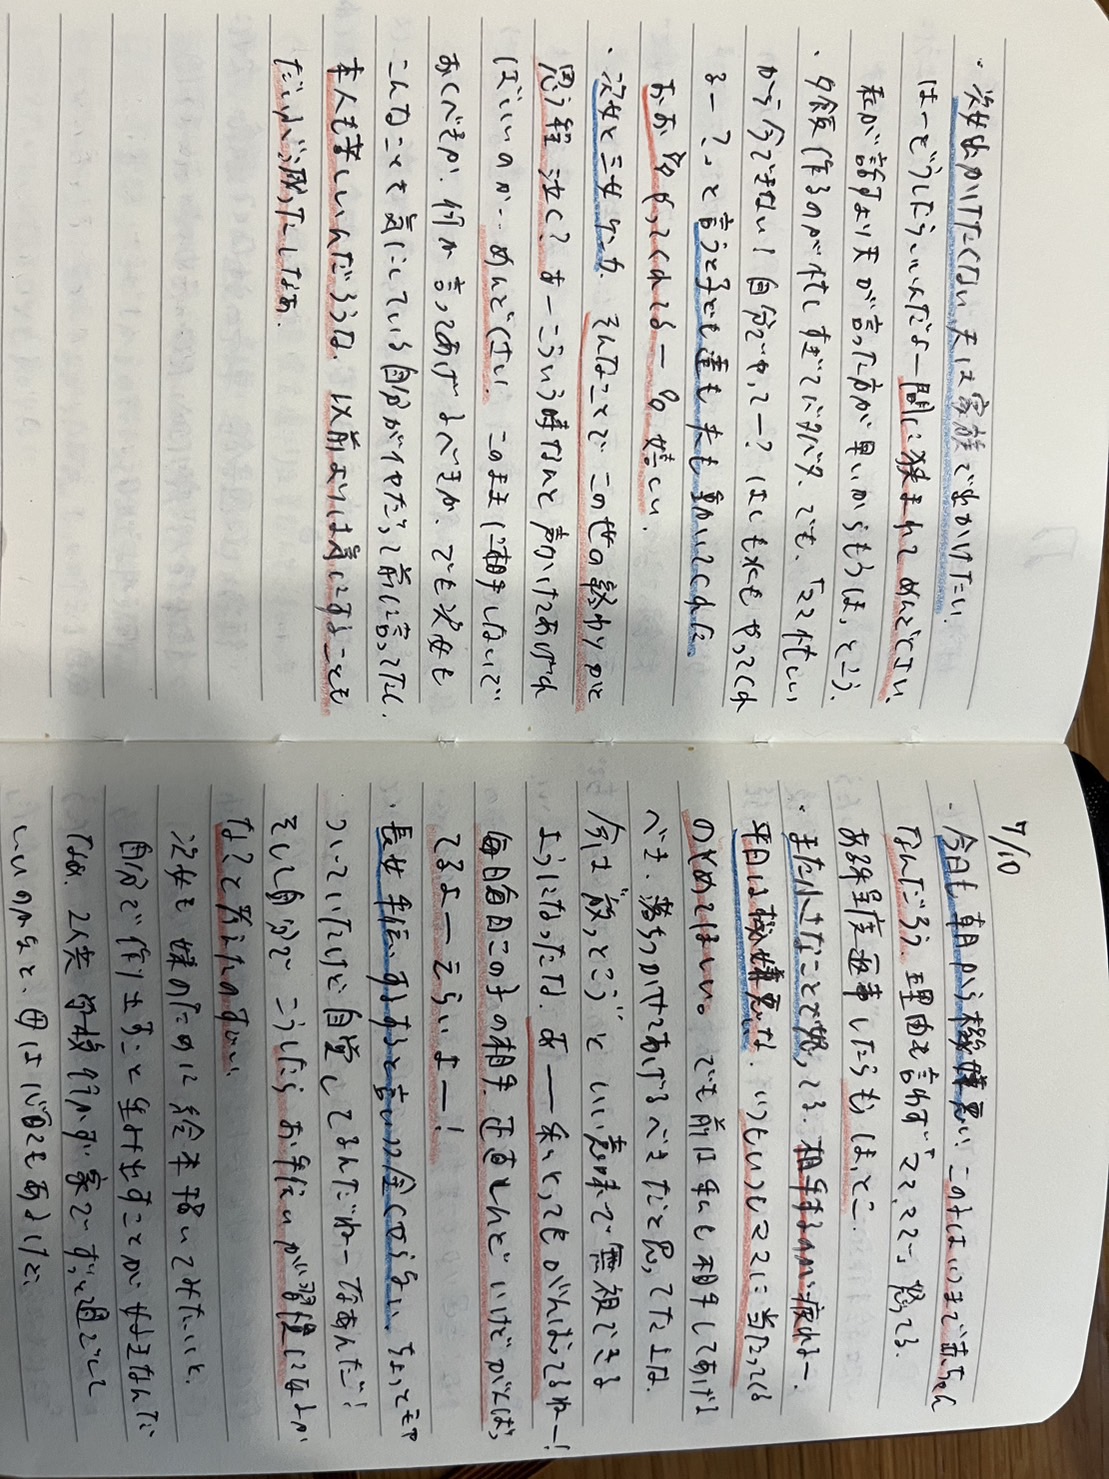 ・次女出かけたくない 夫は家族で出かけたい。
はーどうしたらいいんだよー間に挟まれてめんどくさい。
私が話すより夫が言った方が早いからもうほっとこう。
・夕飯作るのが忙しすぎてバタバタ。でも、「ママ忙しい
から今できない！自分でやってー？はしも水もやってくれ
るー？」と言うと子ども達も夫も動いてくれた。
おお 皆やってくれてるー 嬉しい。
・次女と三女ケンカ。そんなことでこの世の終わりかと
思う程泣く？すーこういう時なんと声かけてあげれ
ばいいのか…めんどくさい。このまま相手しないで
おくべきか、何か言ってあげるべきか、でも次女も
こんなことを気にしている自分がイヤだって前に言ってたし、
本人も苦しいんだろうな。以前よりは気にすることも
だいぶ減ったしなあ。
7/10
・今日も朝から機嫌悪い この子はいつまで赤ちゃん
なんだろう？理由も言わず「ママ、ママ」怒ってる。
ある程度返事したらもうほっとこー。
・また小さなことで怒ってる。相手するのが疲れるー。
平日は機嫌悪いな。いっつもいっつもママに当たってくる
のやめてほしい。でも前は私も相手してあげる
べき、落ちつかせてあげるべきだと思ってたよな。
今は「放っとこう」といい意味で無視できる
ようになったな。あー私とってもがんばってるねー！
毎日毎日この子の相手 正直しんどいけどがんばっ
てるよーえらいよー！
・長女 手伝いするすると言いつつ全くやらない。ちょっとモヤ
ついていたけど自覚してるんだねーなあんだ！
そして自分でこうしたらお手伝いが習慣になるか
なって考えたのすごい
次女も 嫌のために 絵本描いてみたいと。
自分で作り出すこと 生み出すことが好きなんだ
なあ。2人共学校行かず家でずっと過ごして
いいのかなと、母は心配でもあるけど、